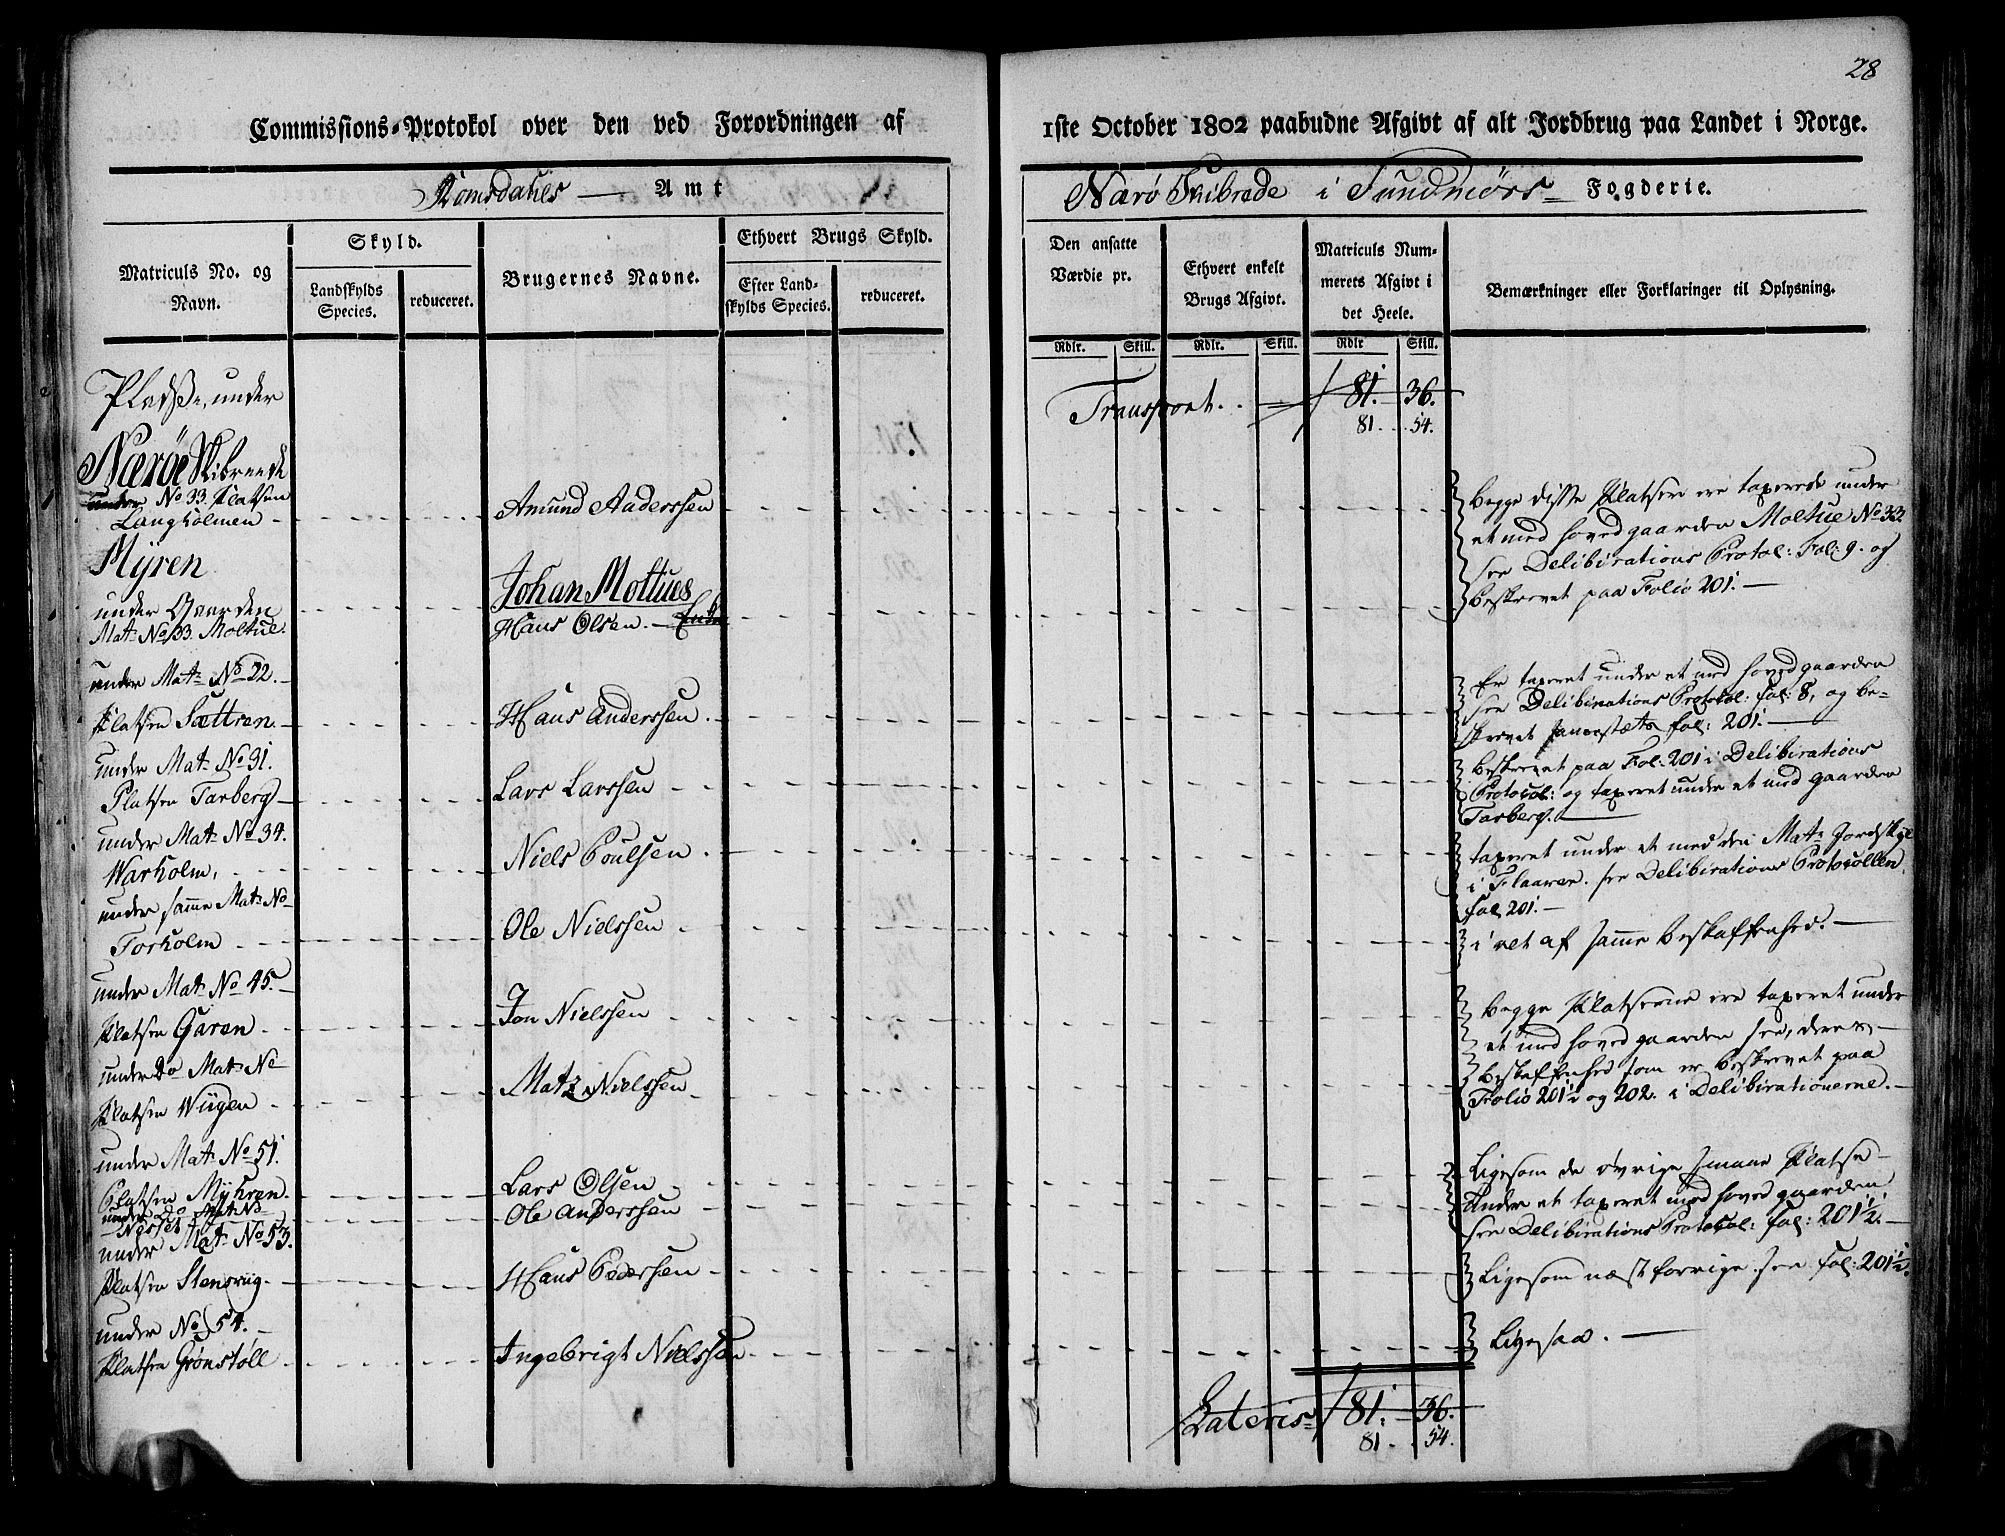 28
Commissions-Protokol over den ved Forordningen af 1ste October 1802 paabudne Afgivt af alt Jordbrug paa Landet i Norge.
Romsdahls — Amt
Nærø Skibrede i Sundmørs Fogderie.
Matriculs No. og Navn.
Skyld.
Landskylds Species.
reduceret.
Brugernes Navne.
Ethvert Brugs Skyld.
Efter Landskylds Species.
reduceret.
Den ansatte Værdie pr.
Ethvert enkelt Brugs Afgivt.
Matriculs Nummerets Afgivt i det Heele.
Bemærkninger eller Forklaringer til Oplysning.
Rdlr. Skill. Rdlr. Skill. Rdlr Skill.
Pladsse, under
Transport. 81. 36.
81. 54.
Nærøe Skibreede
under No 33. Platsen
Langholmen
Amund Anderssen
Begge disse Platser ere taxerede under
et med hovedgaarden Moltue No 33.
see Deliberations Protol: Fol: 9. og
beskrevet paa Folio 201.
Myren
under Gaarden
Mat: No 33. Moltue.
Johan Moltues
Hans Olsen.
under Mat: No 22.
Platsen Sættren.
Hans Anderssen.
Er taxeret under et med hovedgaarden
see Deliberations Protocol: fol: 8, og be-
skrevet sammestæts fol: 201.
under Mat: No 31.
Platsen Tarberg
Lars Larssen
beskrevet paa Fol: 201 i Deliberations
Protocol: og taxeret under et med gaarden
Tarberg.
under Mat: No 34.
Warholm,
Niels Poulsen
taxeret under et med den Mat: Jordskyl
i Flaaren. see Deliberations Protocollen
fol 201.
under samme Mat: No
Torholm
Ole Nielssen
i et af samme beskaffenhed.
under Mat: No 45.
Platsen Garen
Jon Nielssen
Begge Platserne ere taxeret under
et med hovedgaarden see, deres
beskaffenhed som er beskrevet paa
Folio 201½ og 202. i Deliberationerne.
under Do Mat: No
Platsen Wiigen
Matz Nielssen
under Mat: No 51.
Platsen Myhren.
Lars Olsen
Ligesom de øvrige smaae Platse
under et taxeret med hovedgaarden
see Deliberations Protocol: fol: 201½.
under Do Mat: No
Nesset
Ole Anderssen
under Mat: No 53.
Platsen Stensviig.
Hans Pederssen
Ligesom næst forrige. see fol: 201½.
under No 54.
Platsen Grønstøll
Ingebrigt Nielssen
Ligesaa.
Lateris 81. 36.
81. 54.